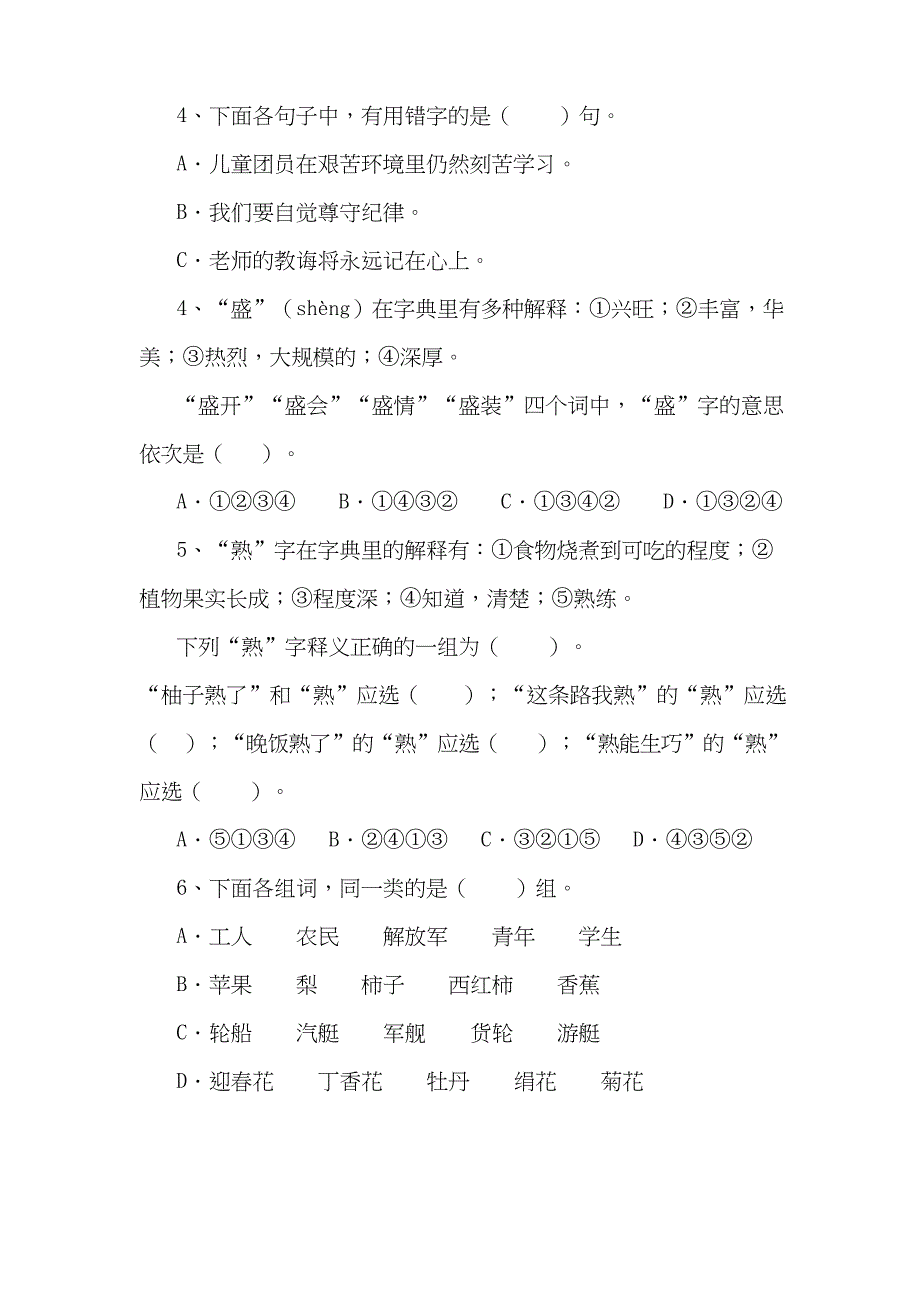 4、下面各句子中，有用错字的是（  ）句。
A．儿童团员在艰苦环境里仍然刻苦学习。
B．我们要自觉尊守纪律。
C．老师的教诲将永远记在心上。
4、“盛”（shèng）在字典里有多种解释：①兴旺；②丰富，华
美；③热烈，大规模的；④深厚。
“盛开”“盛会”“盛情”“盛装”四个词中，“盛”字的意思
依次是（  ）。
A．①②③④  B．①④③②  C．①③④②  D．①③②④
5、“熟”字在字典里的解释有：①食物烧煮到可吃的程度；②
植物果实长成；③程度深；④知道，清楚；⑤熟练。
下列“熟”字释义正确的一组为（  ）。
“柚子熟了”和“熟”应选（  ）；“这条路我熟”的“熟”应选
（  ）；“晚饭熟了”的“熟”应选（  ）；“熟能生巧”的“熟”
应选（  ）。
A．⑤①③④  B．②④①③  C．③②①⑤  D．④③⑤②
6、下面各组词，同一类的是（  ）组。
A．工人  农民  解放军  青年  学生
B．苹果  梨  柿子  西红柿  香蕉
C．轮船  汽艇  军舰  货轮  游艇
D．迎春花  丁香花  牡丹  绢花  菊花